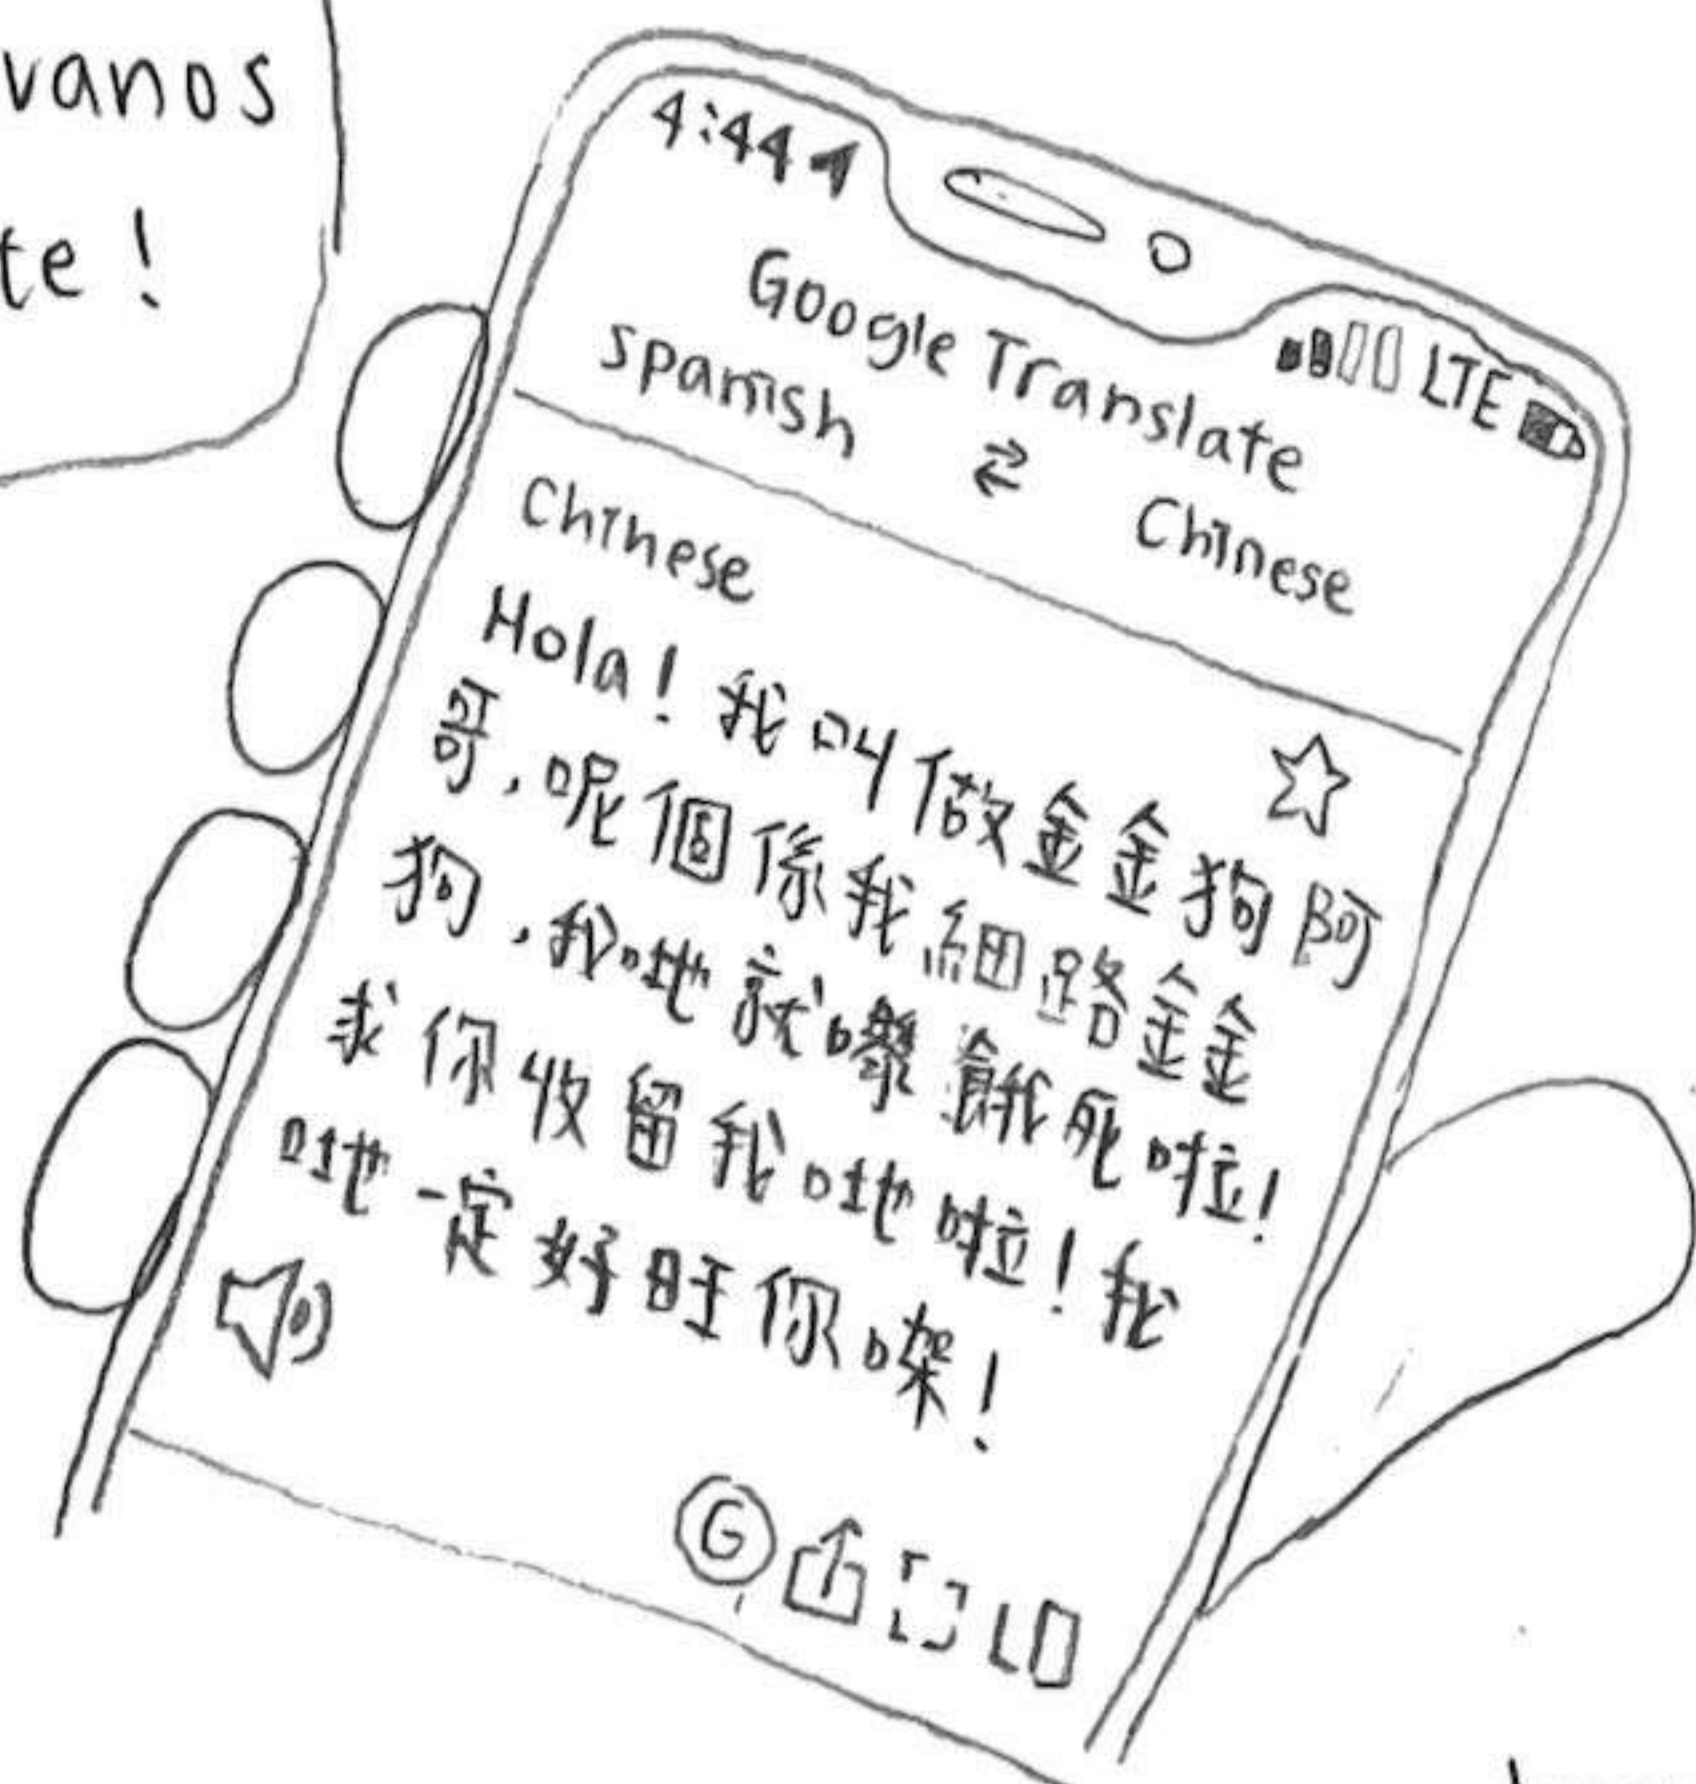 vanos
te!
4:44
LTE
Google Translate
Spanish ⇄ Chinese
Chinese
Hola! 我叫做金金狗阿
哥,呢個係我細路金金
狗,我哋就嚟餓死啦!
求你收留我哋啦!我
哋一定好旺你㗎!
G